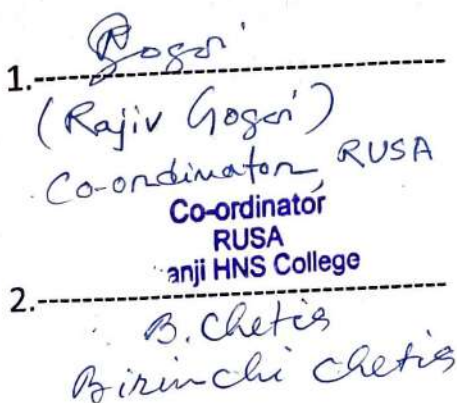 Gogoi
1.--------------------
(Rajiv Gogoi)
Co-ordinator, RUSA
Co-ordinator
RUSA
anji HNS College
2.--------------------
B. Chetia
Birinchi Chetia